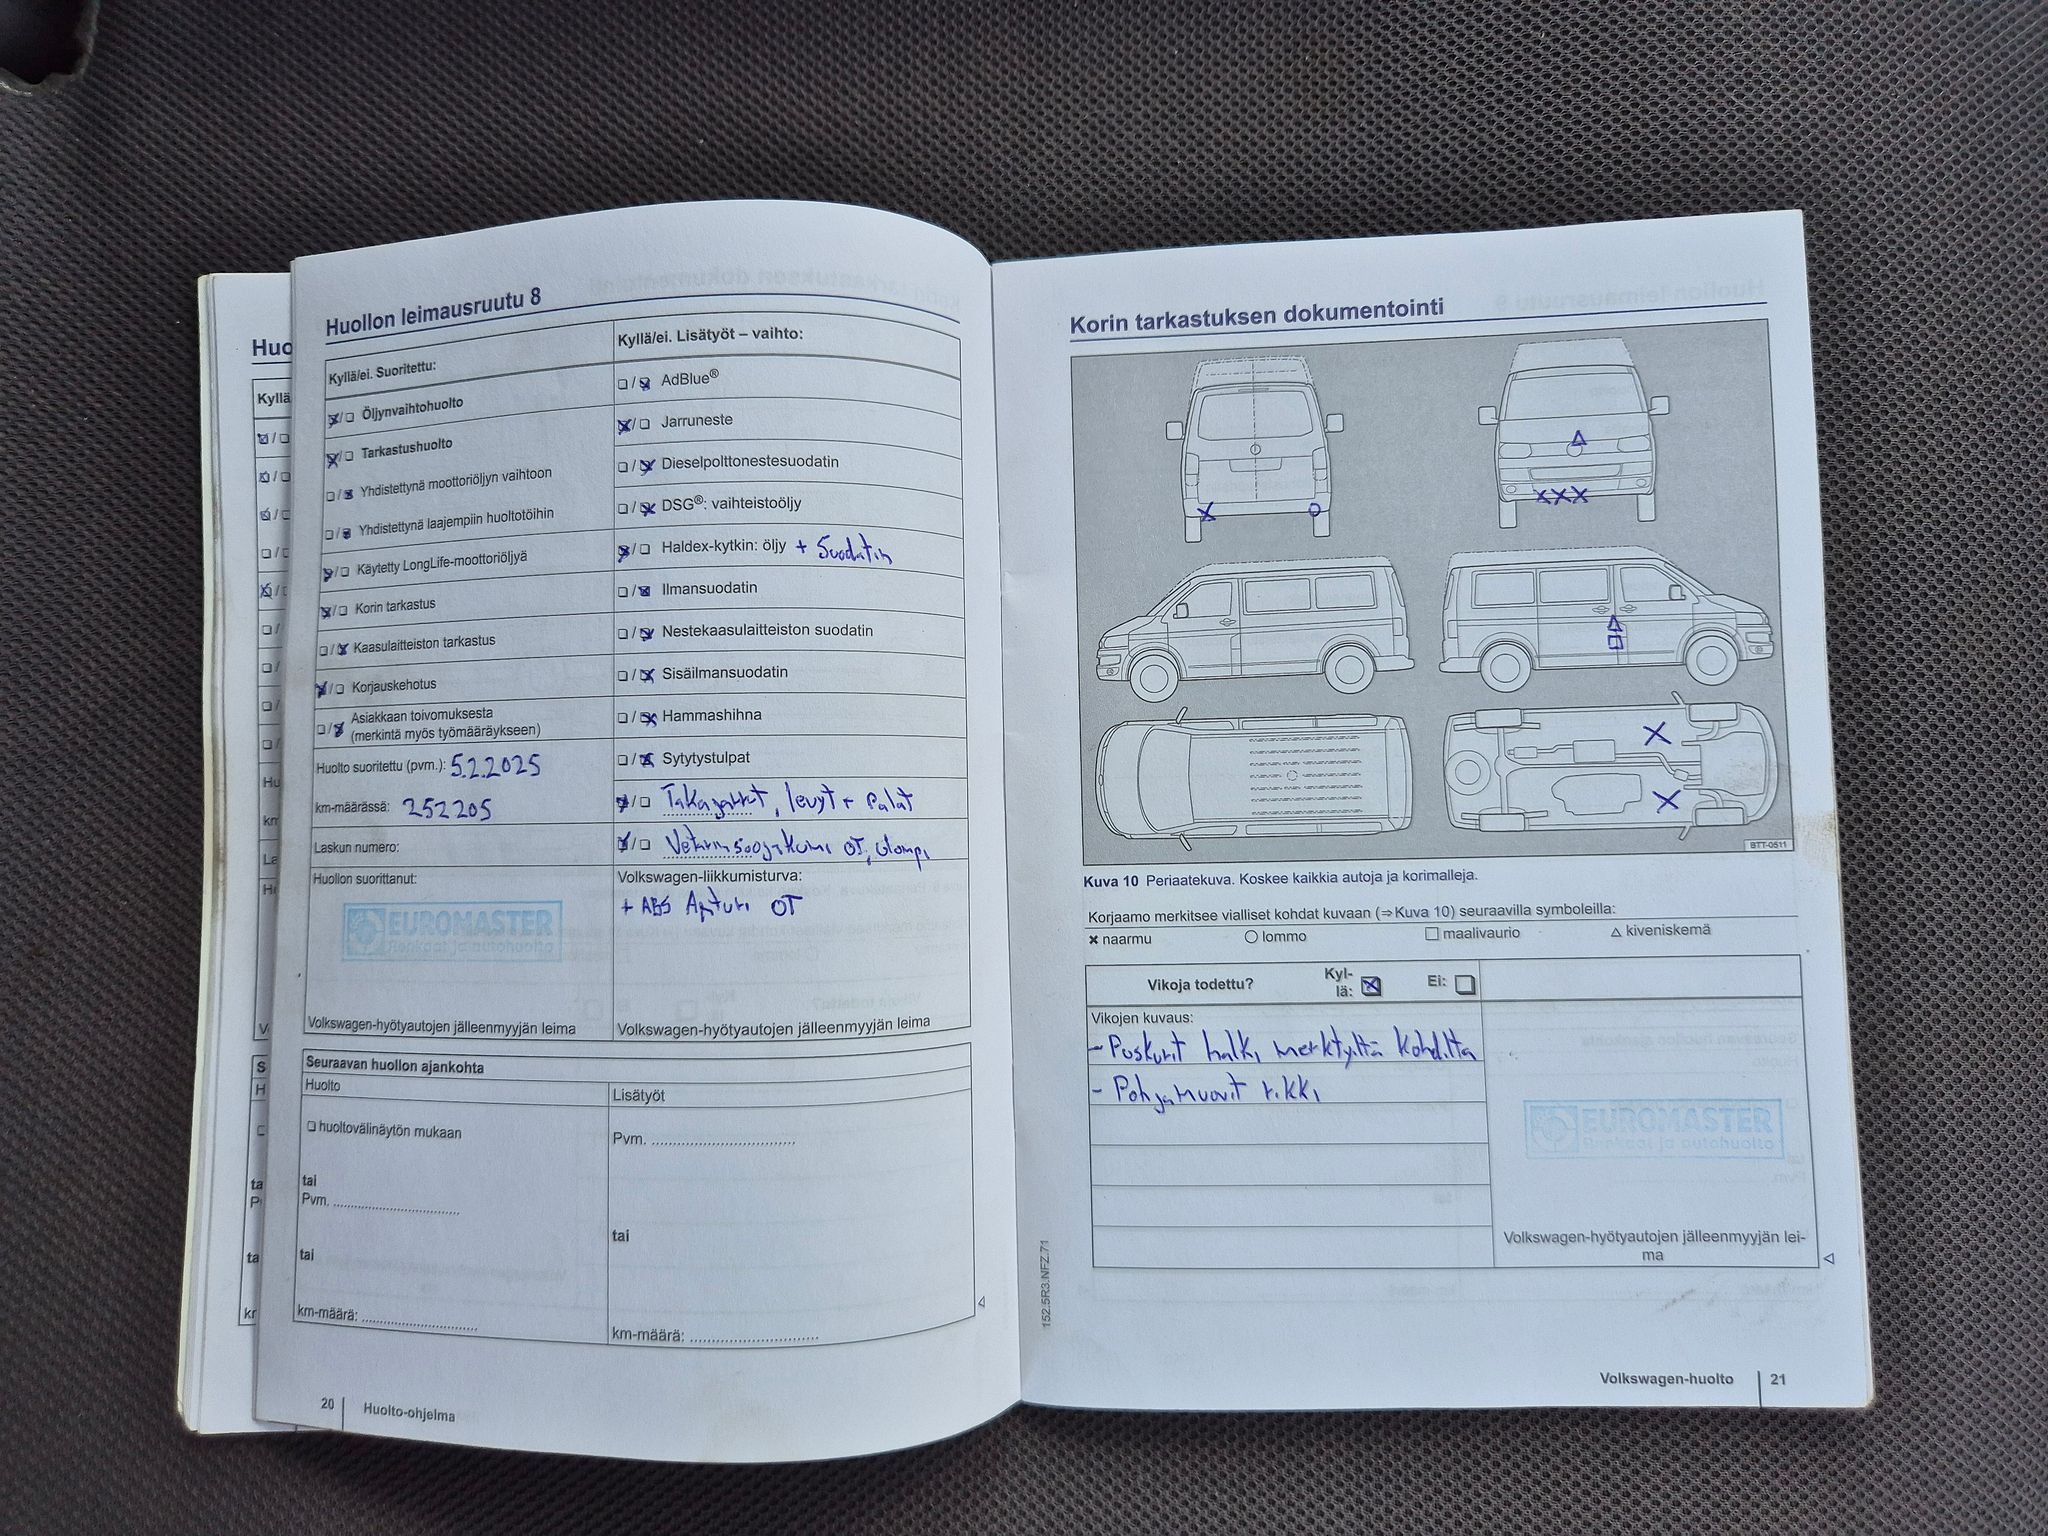 Huo
Kyllä
Huollon leimausruutu 8
Kyllä/ei. Suoritettu:
Öljynvaihtohuolto
Tarkastushuolto
Yhdistettynä moottoriöljyn vaihtoon
Yhdistettynä laajempiin huoltotöihin
Käytetty LongLife-moottoriöljyä
Korin tarkastus
Kaasulaitteiston tarkastus
Korjauskehotus
Asiakkaan toivomuksesta
(merkintä myös työmääräykseen)
Huolto suoritettu (pvm.): 5.2.2025
km-määrässä: 252205
Laskun numero:
Huollon suorittanut:
EUROMASTER
Renkaat ja autohuolto
Volkswagen-hyötyautojen jälleenmyyjän leima
Kyllä/ei. Lisätyöt – vaihto:
AdBlue®
Jarruneste
Dieselpolttonestesuodatin
DSG®: vaihteistoöljy
Haldex-kytkin: öljy + Suodatin
Ilmansuodatin
Nestekaasulaitteiston suodatin
Sisäilmansuodatin
Hammashihna
Sytytystulpat
Takajarrut, levyt + Palat
OT,
Volkswagen-liikkumisturva:
+ ABS Anturi OT
Volkswagen-hyötyautojen jälleenmyyjän leima
Seuraavan huollon ajankohta
Huolto
huoltovälinäytön mukaan
tai
Pvm.
tai
km-määrä:
Lisätyöt
Pvm.
tai
km-määrä:
20 Huolto-ohjelma
Korin tarkastuksen dokumentointi
BTT-0511
Kuva 10 Periaatekuva. Koskee kaikkia autoja ja korimalleja.
Korjaamo merkitsee vialliset kohdat kuvaan (⇒ Kuva 10) seuraavilla symboleilla:
× naarmu ○ lommo □ maalivaurio △ kiveniskemä
Vikoja todettu? Kyl-
lä: Ei:
Vikojen kuvaus:
- Puskurit halki merktyiltä kohdilta
- Pohjamuovit rikki
EUROMASTER
Renkaat ja autohuolto
Volkswagen-hyötyautojen jälleenmyyjän lei-
ma
152.5R3.NFZ.71
Volkswagen-huolto 21